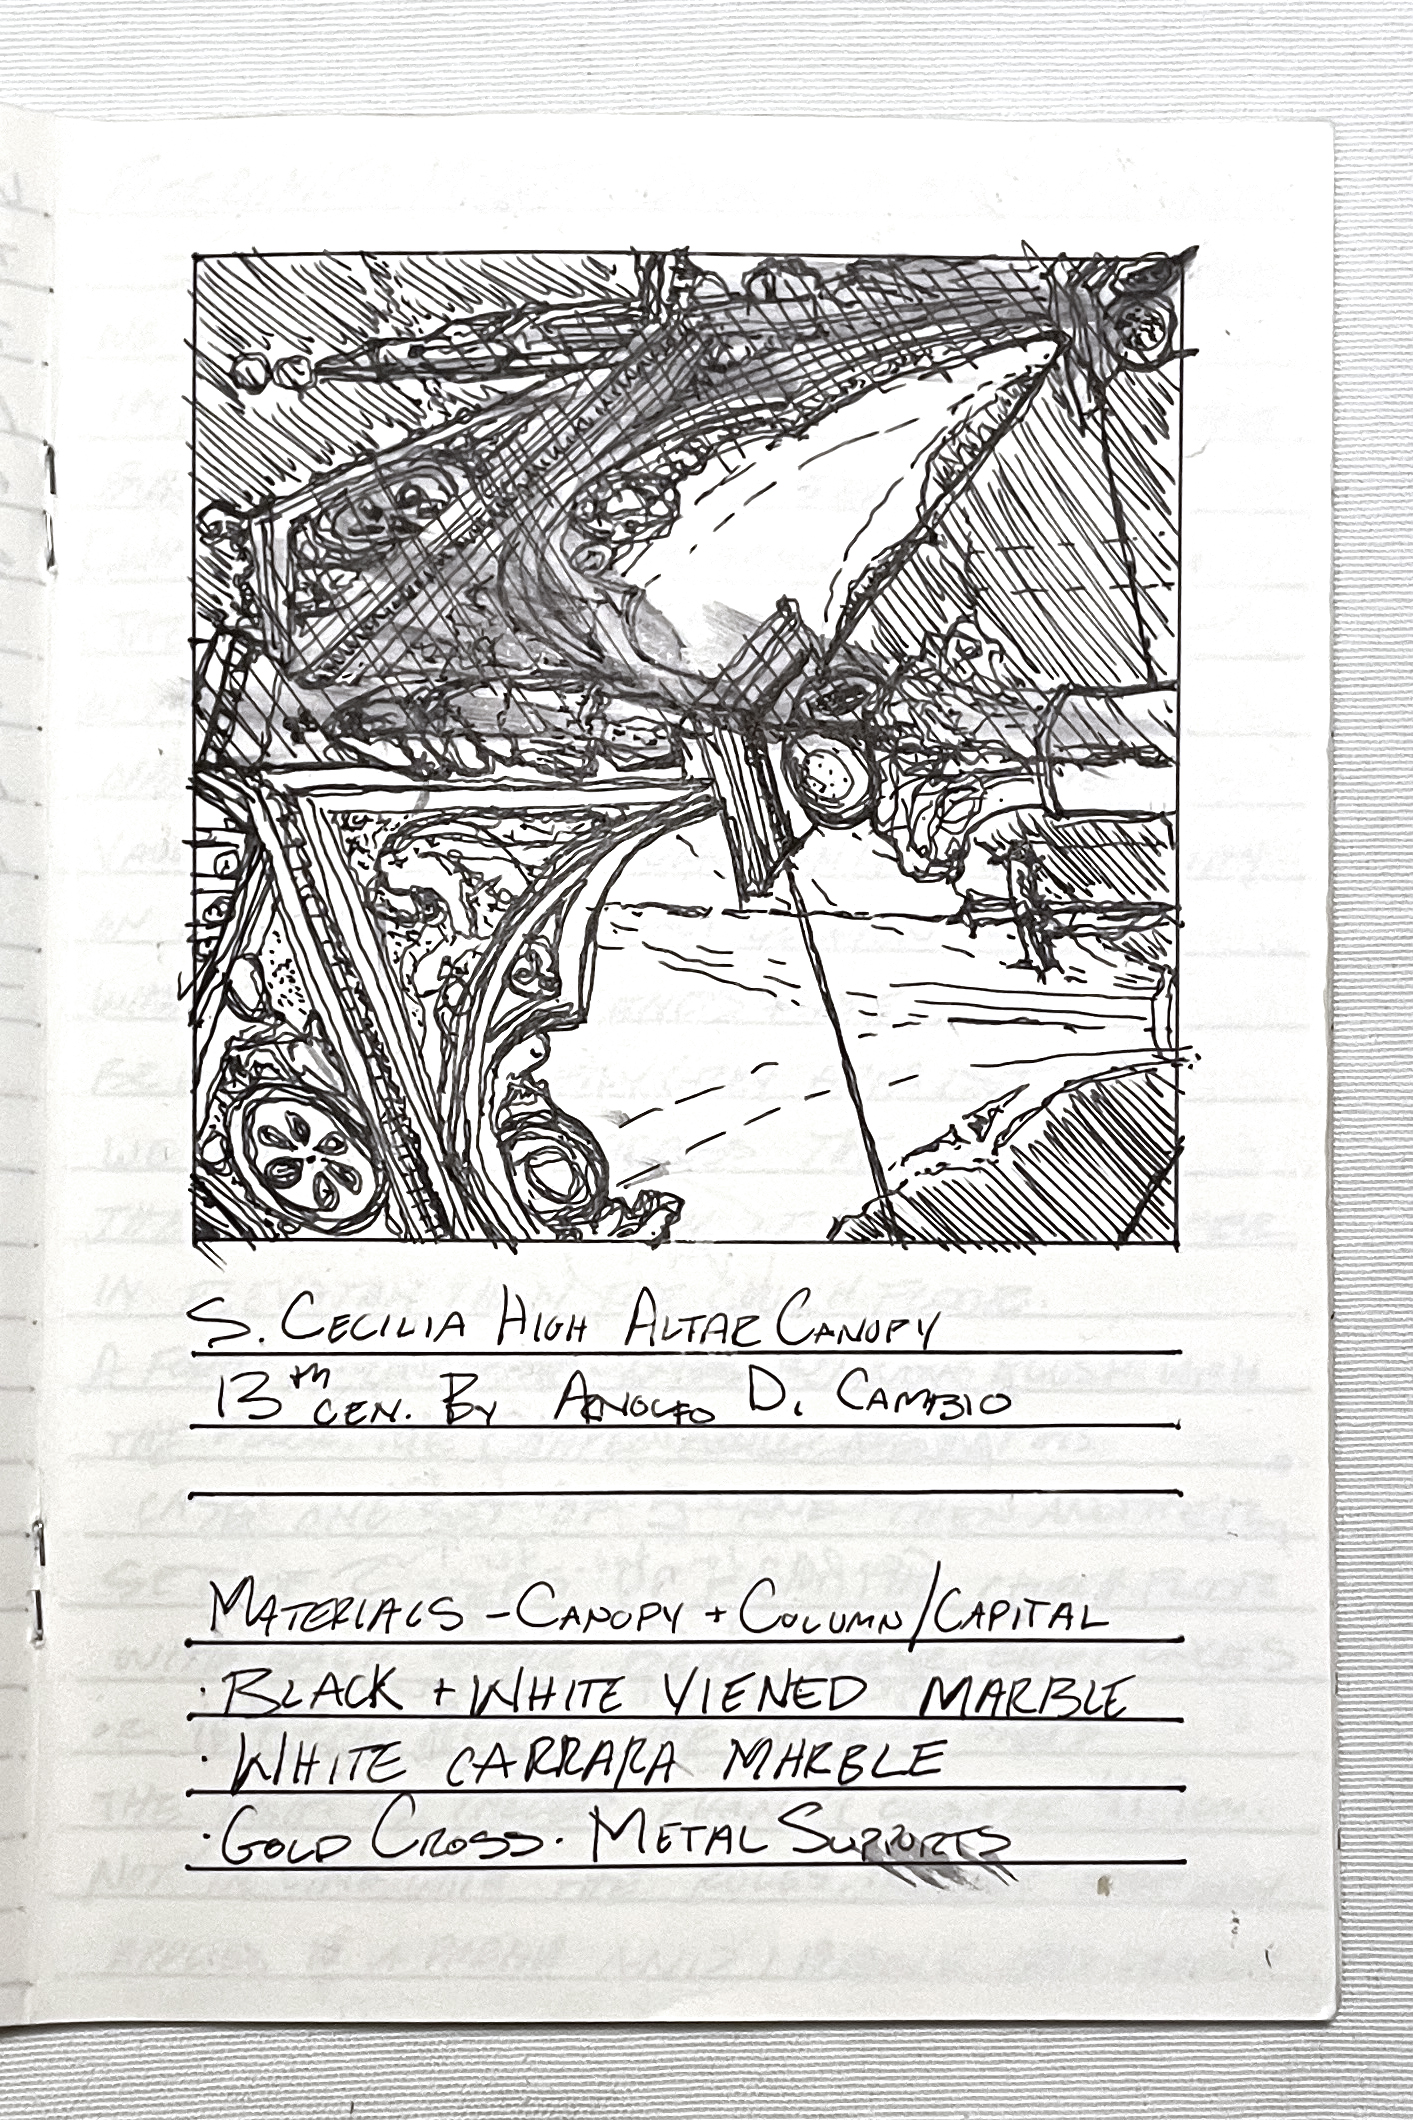 S. CECILIA HIGH ALTAR CANOPY
13th CEN. BY ARNOLFO D. CAMBIO
MATERIALS - CANOPY + COLUMN/CAPITAL
· BLACK + WHITE VIENED MARBLE
· WHITE CARRARA MARBLE
· GOLD CROSS · METAL SUPPORTS